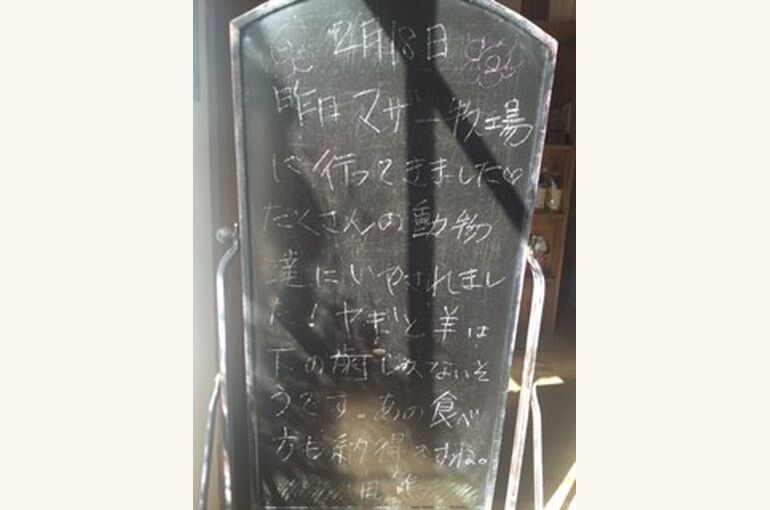 2月18日
昨日マザー牧場
に行ってきました♡
たくさんの動物
達にいやされまし
た！ヤギと羊は
下の歯しかないそ
うです。あの食べ
方も納得ですね。